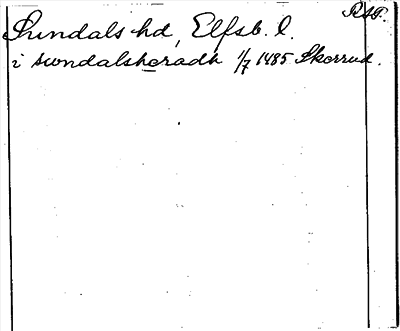 Sundals hd, Elfsb. l.
i swndalsheradh 1/7 1485 Skorrud.